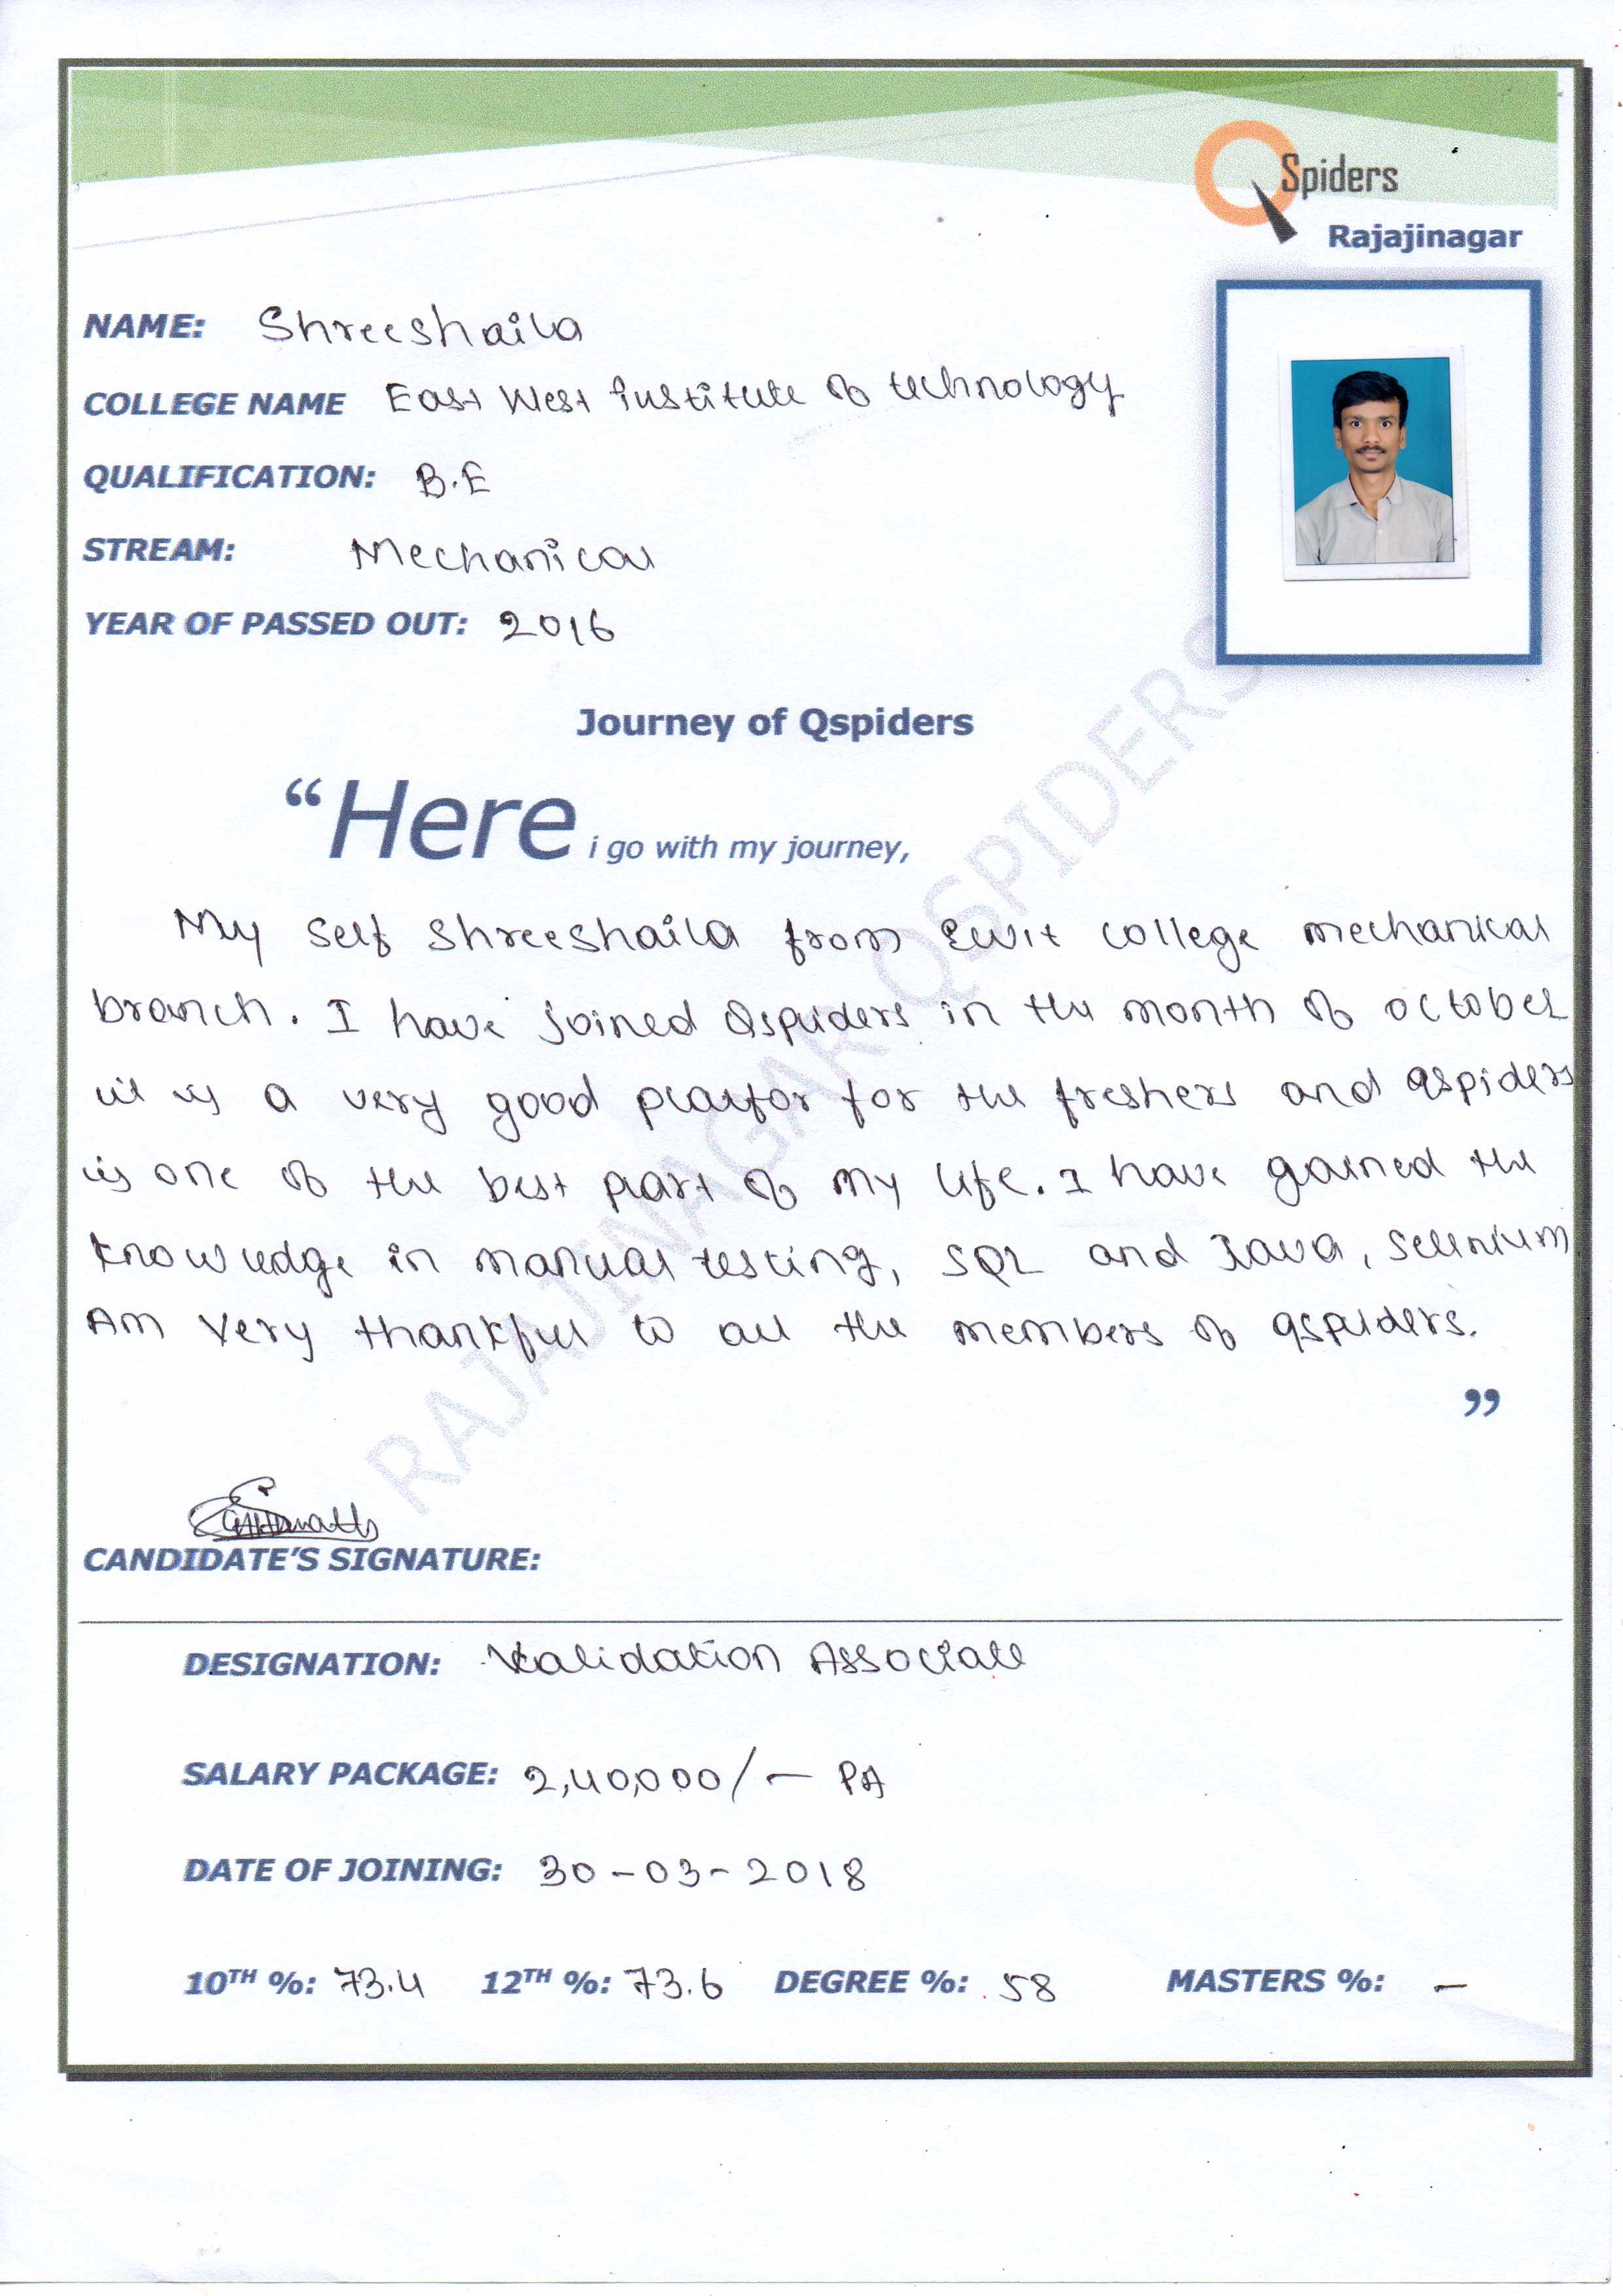 QSpiders
Rajajinagar
NAME: Shreeshaila
COLLEGE NAME East West institute of technology
QUALIFICATION: B.E
STREAM: Mechanical
YEAR OF PASSED OUT: 2016
Journey of Qspiders
“Here i go with my journey,
My self Shreeshaila from Ewit college mechanical
branch. I have joined Qspiders in the month of october
it is a very good platfor for the freshers and qspiders
is one of the best part of my life. I have gained the
knowledge in manual testing, SQL and Java, Selenium
Am very thankful to all the members of qspiders.
”
RAJAJINAGAR QSPIDERS
CANDIDATE’S SIGNATURE:
DESIGNATION: Validation Associate
SALARY PACKAGE: 2,40,000/- PA
DATE OF JOINING: 30-03-2018
10TH %: 73.4 12TH %: 73.6 DEGREE %: 58 MASTERS %: -